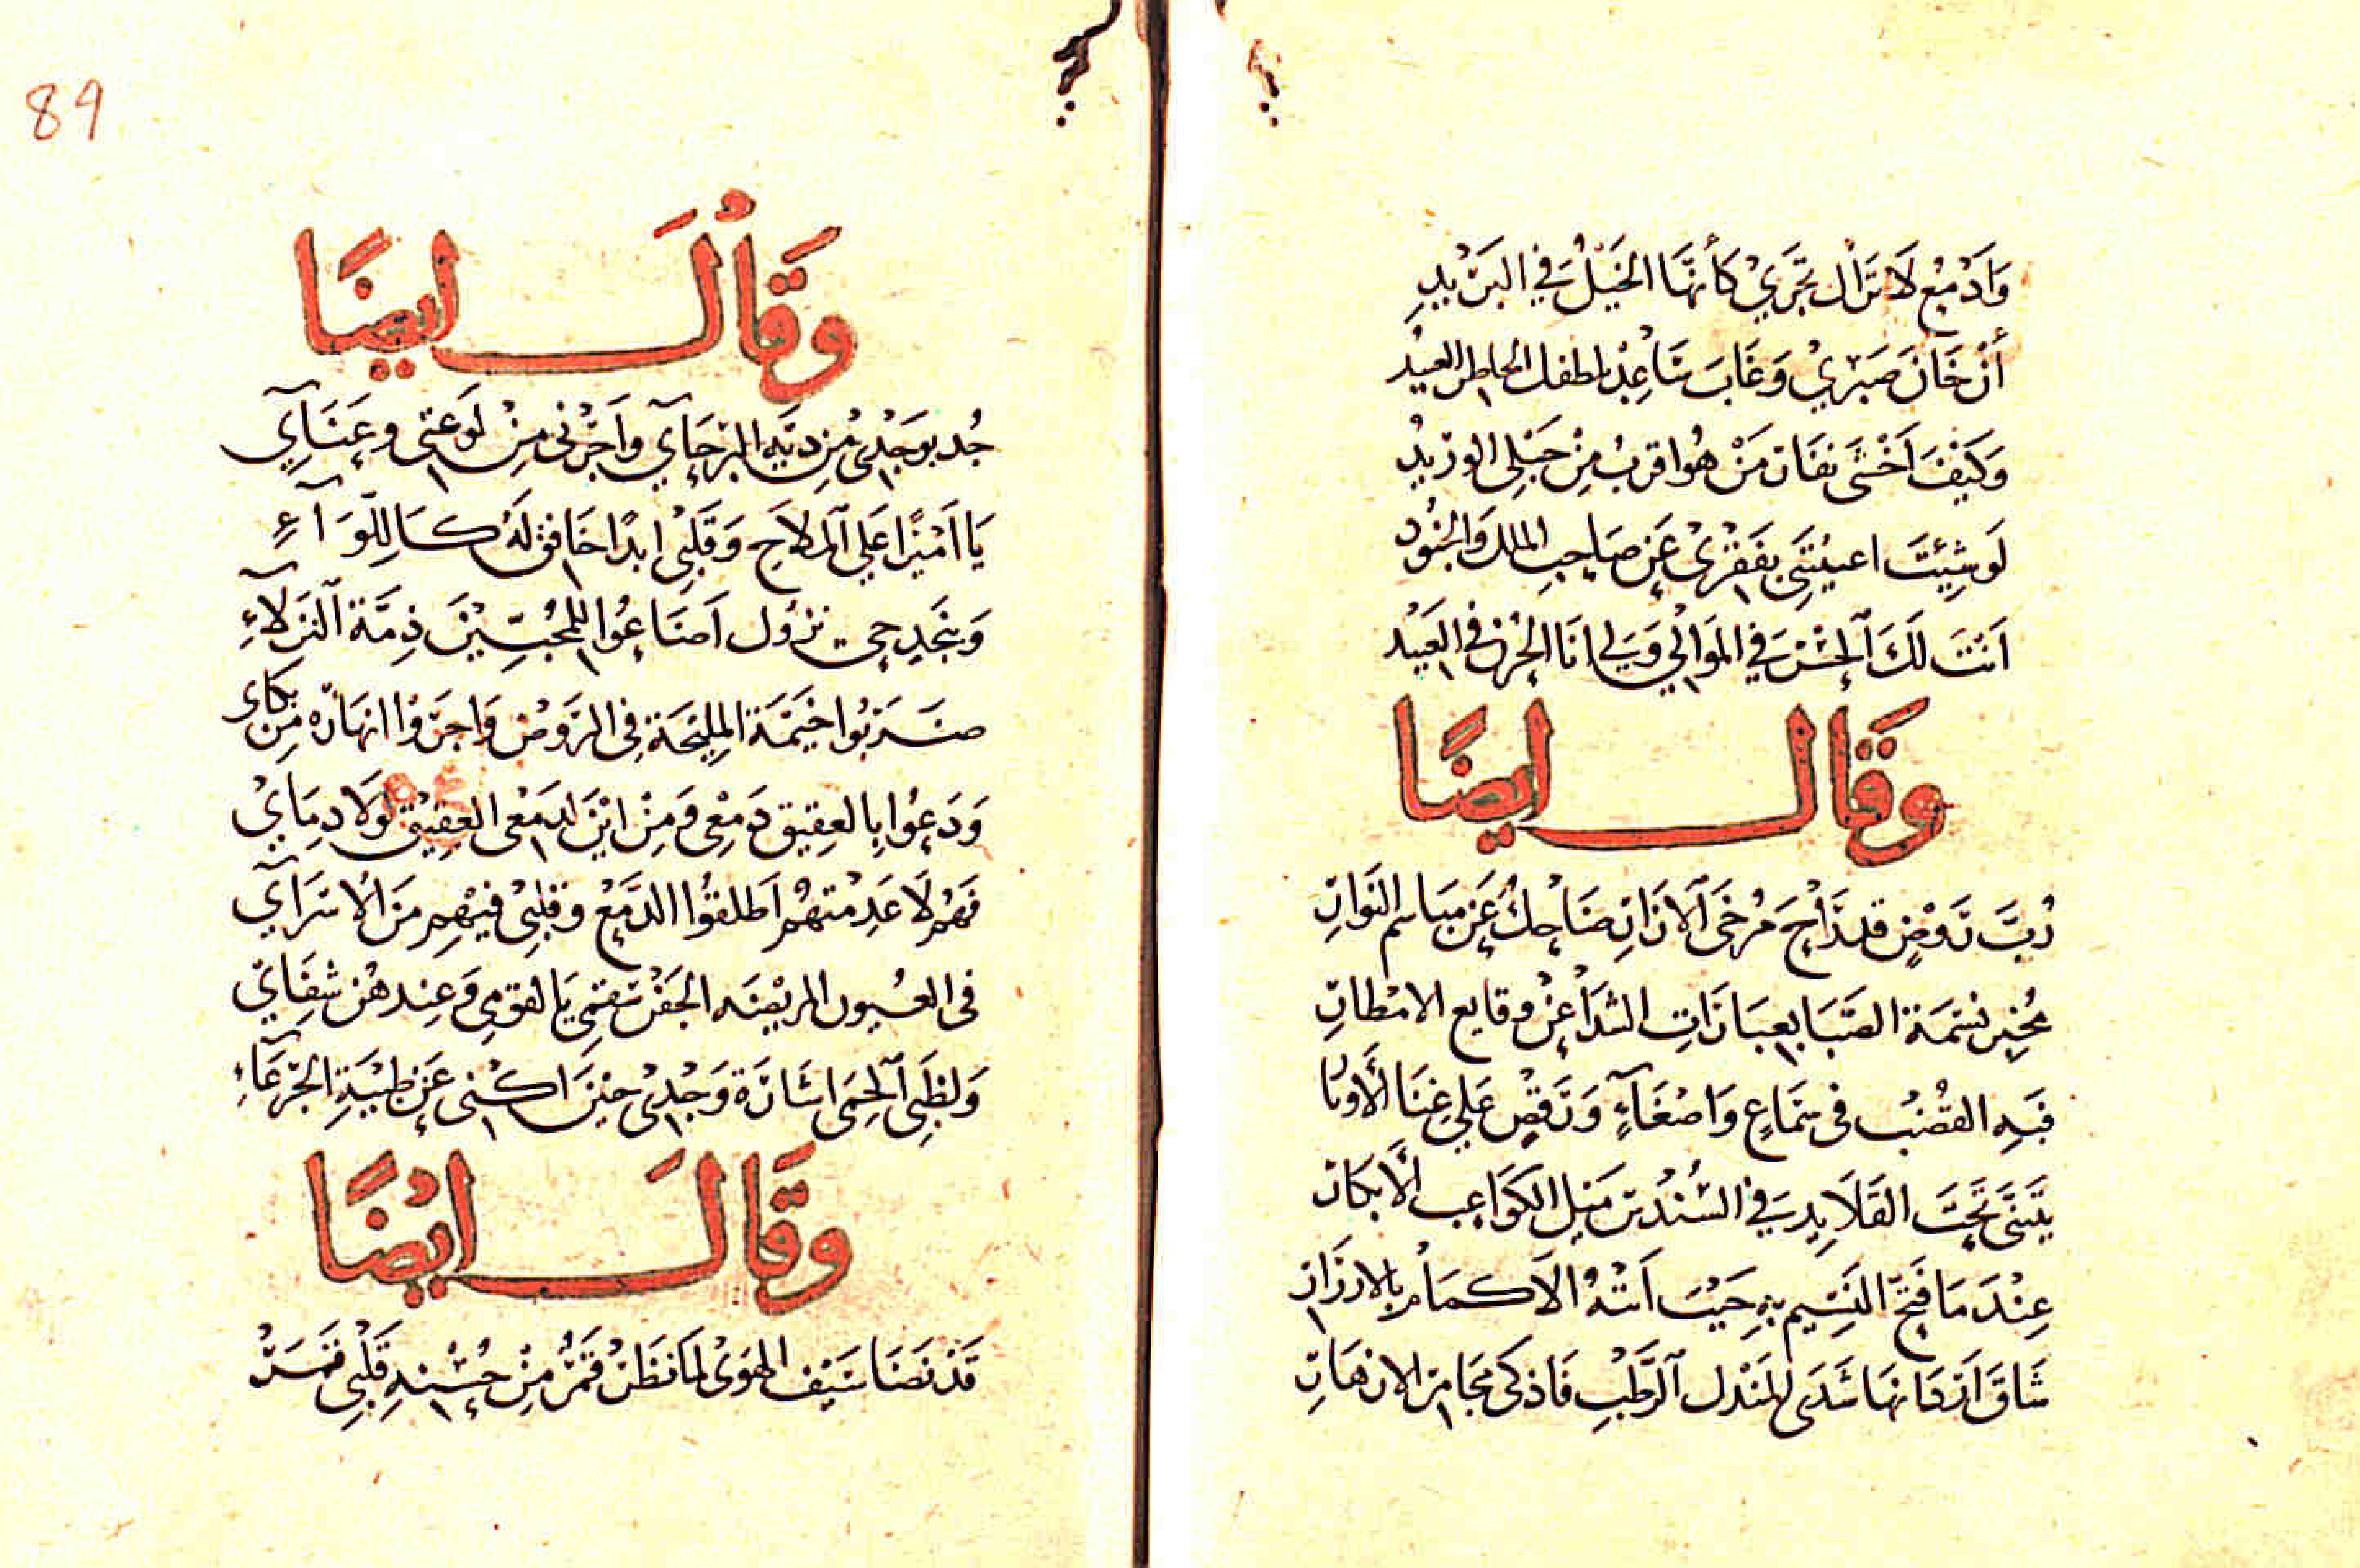 وَاَدْمُعٍ لَا تَزَالُ تَجْرِيْ كَأَنَّهَا الخَيْلُ فِي البَرِيْدِ
أَنْ خَانَ صَبْرِيْ وَغَابَ
وَكَيْفَ اَخْشَى نِفَارَ مَنْ هُوَ اقْرَبُ مِنْ حَبْلِي الوَرِيْدِ
لَوشِئْتَ اغنيْتَنِي بِفَقْرِيْ عَنْ صَاحِبِ الملكِ وَالجُنُودِ
اَنْتَ لَكَ ٱلحُسْنُ فِي المَوَالِيْ وَلِي انَا الحُزْنُ فِي العَبِيْدِ
وَقَال ايضًا
رُبَّ رَوْضٍ قَد رَاْحَ مُرْخَى ٱلاَزَارِ ضَاحِكٌ عَنْ مَبَاسِم النَوَارِ
مُخْبِر نَسْمَةَ الصَّبَا بِعِبَارَاتِ الشَدَا عَنْ وقَايع الامْطَارِ
فَبِهِ القُضْبُ فى سَمَاعٍ وَاصْغَآءٍ وَرَقْصٍ عَلى غِنَا ٱلأَوتَا
يَتَثَنَّى تَحْتَ القَلَايِدِ فِي السُنْدُسِ مَيْل الكَوَاعِبِ الأَبْكَار
عِنْدَ مَا فَتَحَ النَسِيم بِهِ حَيْثُ اَتَتْهُ الاَكمَامُ بالازرَار
شَاقَ اَرْدَانهَا شَدَى المَنْدَل ٱلرَّطْبِ فَاذكَى مَجَامِرَ الازهَارِ
89
وَقَالَ ايضًا
جُد بوَجْدِى مِن الرَجَآئِ وَاَجِرْنى مِنْ لَوعَتِى وعَنَآئِي
يَا اَمِيْرًا عَلي ٱلمِلاَحِ وَقَلْبِى ابدًا خَافِق لَهُ كَاللِّوَآءِ
وَبِنَجْدٍ حي نزُول اَضَاعُوا للمُحِبِّيْنَ ذِمَّةَ ٱلنزَلَآءِ
ضَرَبُوا خَيْمَةَ المِلِيْحَةِ فِى الرَّوضِ وَاجرَوْا انهَارَهُ مِنْ بكَاى
وَدَعُوا بِالعِقِيقِ دَمْعِى وَمِنْ ايْنَ لِدَمْعِى العِقِيْقِ لَوْلَا دِمَايْ
فَهُمْ لَا عَدِمْتهُمْ اَطلقُوا الدَّمْعَ وَقَلْبِىْ فِيْهِم مِنَ الأُسَرَآي
فى العُيون المرِيْضَه الجَفْنِ سَقمِى يَا لقَوْمِى وَعِندهُنَّ شِفَايَ
وَلِظَبِى ٱلحِمَى اشَارَة وَجْدِىْ حِيْنَ اَكنى عَنْ ظَبْيَةِ الجَرْعَآءِ
وَقَالَ ايْضًا
قَدْ نَضَا سَيْفَ الهَوَى لمَا نَظَرْ قَمَرٌ مِنْ حُسْنِهِ قَلْبِى قَمَرْ